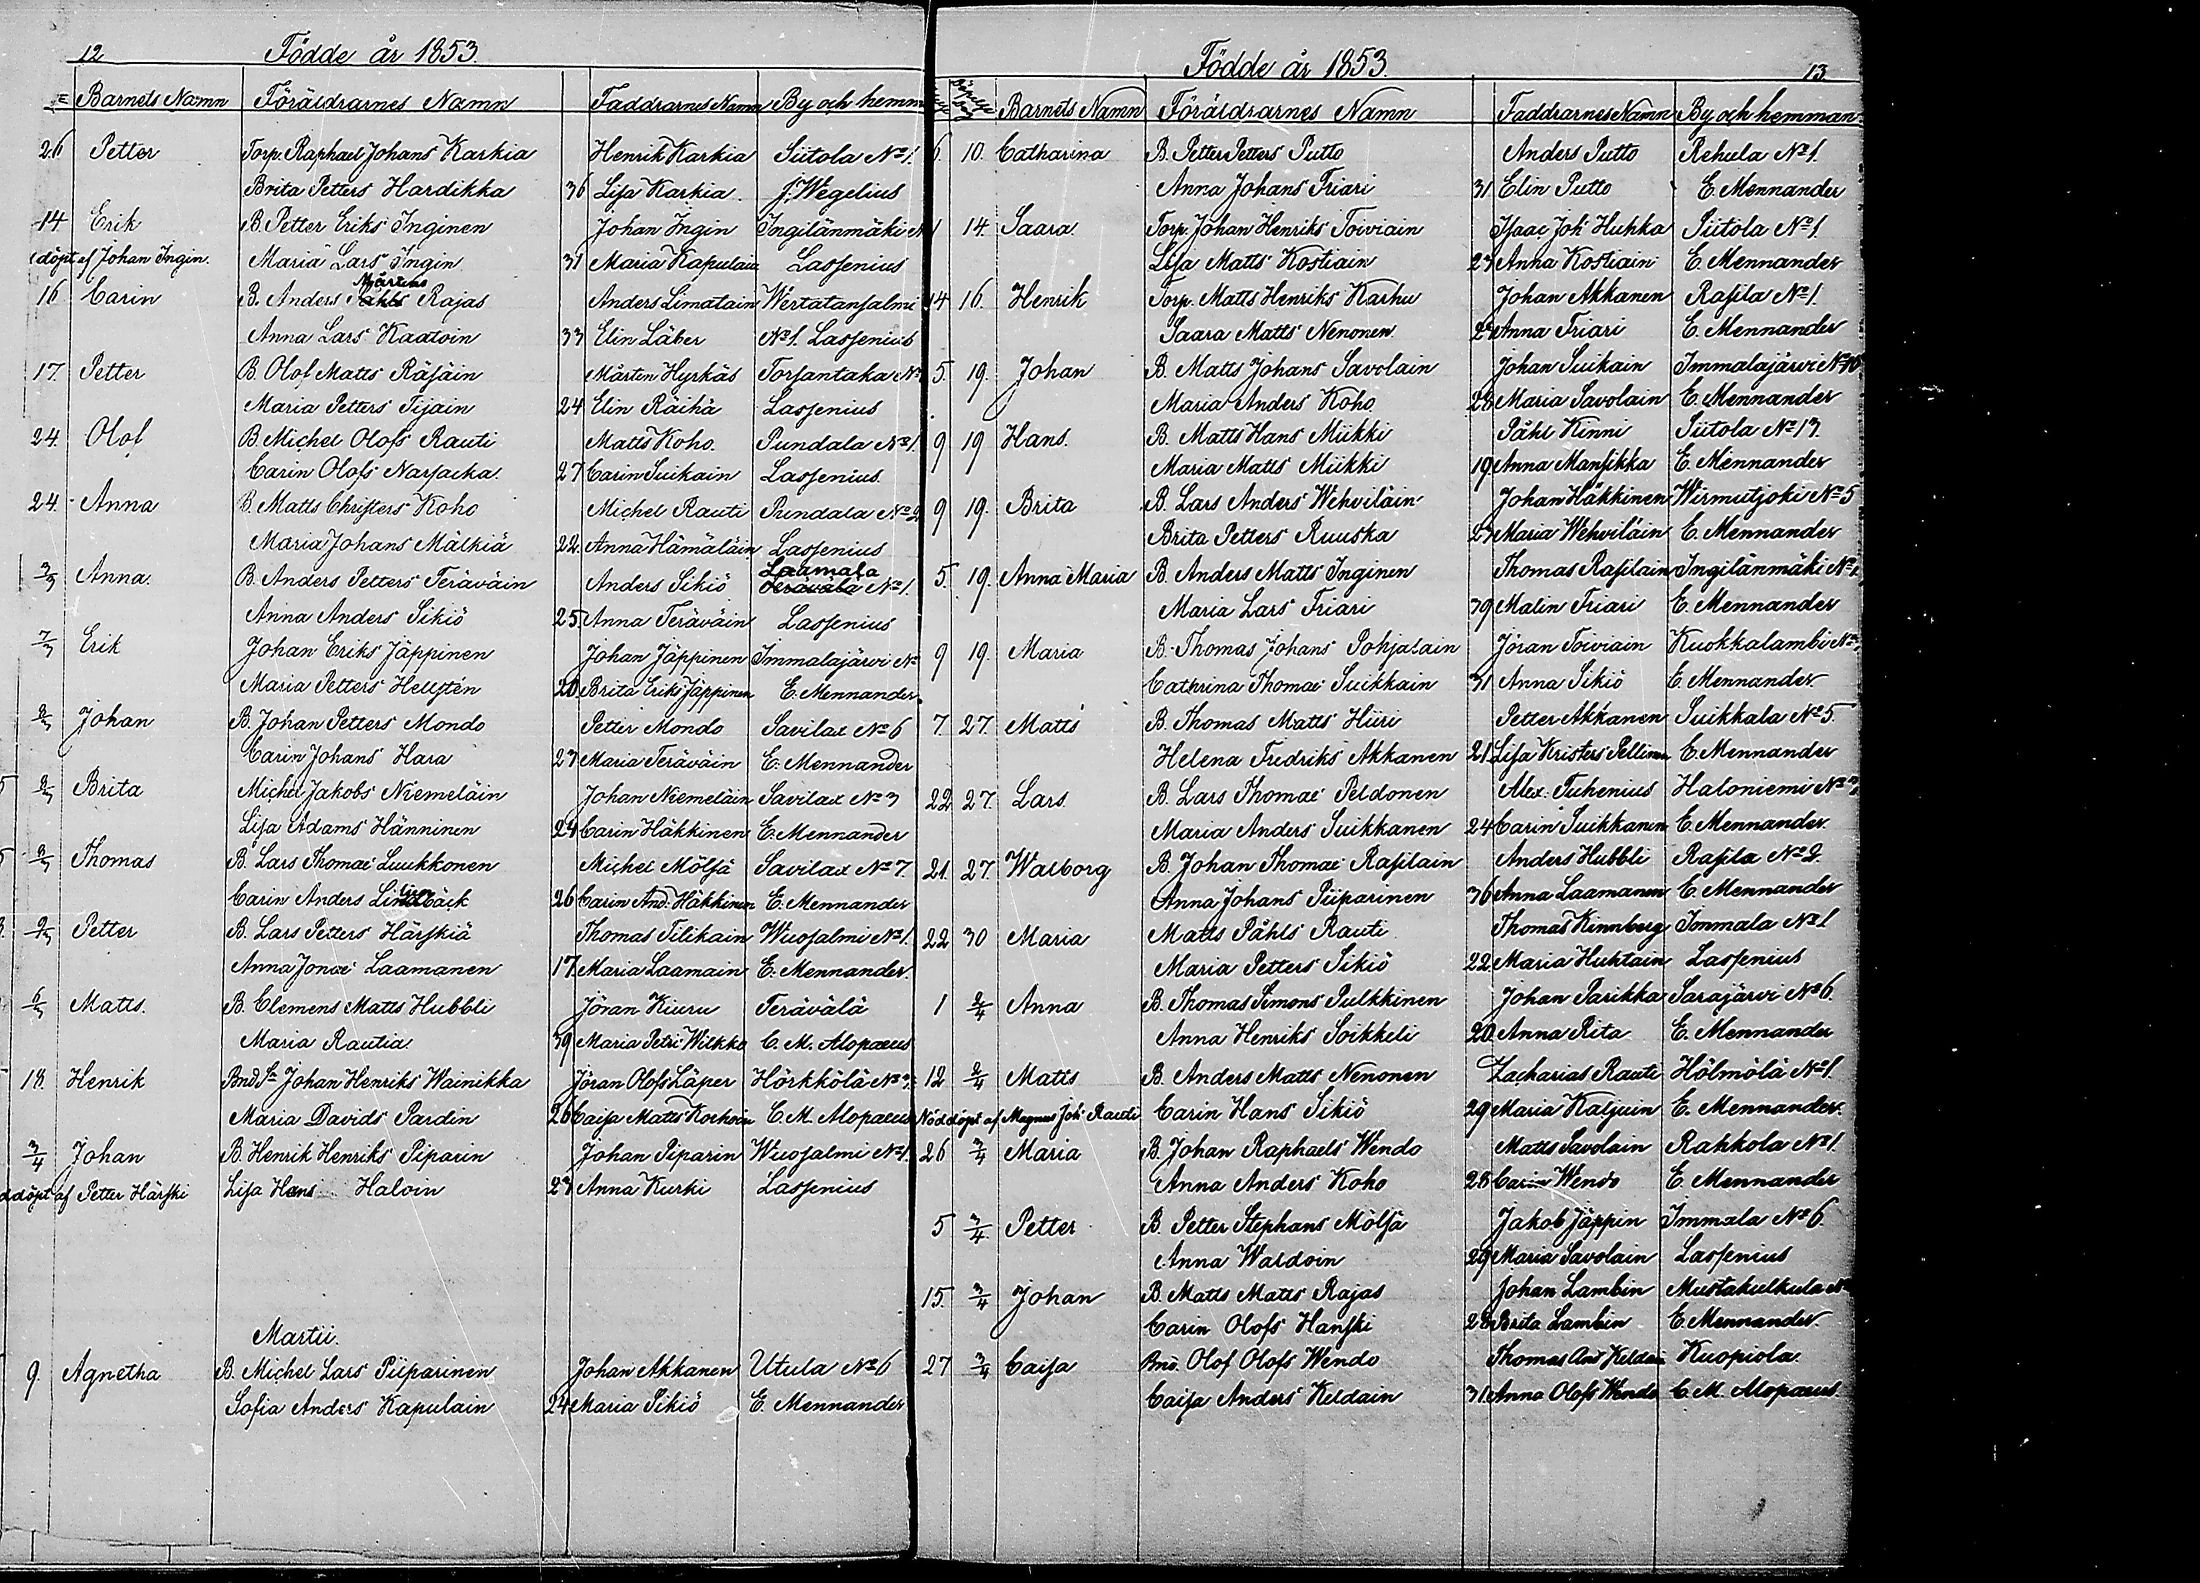 12 Födde år 1853.
Barnets Namn Föräldrarnes Namn Faddrarnes Namn By och hemm
26 Petter Torp. Raphael Johans Karkia Henrik Karkia Siitola No 1.
Brita Petters Hardikka 36 Lisa Karkia J. Wegelius
14 Erik B. Petter Eriks Inginen Johan Ingin Ingilänmäki
döpt af Johan Ingin. Maria Lars Ingin 31 Maria Kapulain Lassenius
Mårtens
16 Carin B. Anders Påhls Rajas Anders Limatain Wertatansalmi
Anna Lars Kaatoin 33 Elin Läber No 1. Lassenius
17. Petter B. Olof Matts Räsäin Mårten Hyrkäs Torsantaka No
Maria Petters Tijain 24 Elin Räihä Lassenius
24. Olof B. Michel Olofs Rauti Matts Koho. Pundala No 1.
Carin Olofs Narsacka. 27 Carin Suikain Lassenius.
24. Anna B. Matts Christers Koho Michel Rauti Pundala No 2
Maria Johans Mälkiä 22. Anna Hämäläin Lassenius
Laamala
3/3 Anna. B. Anders Petters Teräväin Anders Sikiö Terävälä No 1.
Anna Anders Sikiö 25. Anna Teräväin Lassenius
7/3 Erik Johan Eriks Jäppinen Johan Jäppinen Immalajärvi No
Maria Petters Hellstén 20 Brita Eriks Jäppinen E. Mennander.
2/3 Johan B. Johan Petters Mondo Petter Mondo Savilax No 6
Carin Johans Hara 23 Maria Teräväin E. Mennander
2/3 Brita Michel Jakobs Niemeläin Johan Niemeläin Savilax No 3
Lisa Adams Hänninen 24 Carin Häkkinen E. Mennander
2/3 Thomas B. Lars Thomae Luukkonen Michel Mölsä Savilax No 7.
Carin Anders 26 Carin And. Häkkinen E. Mennander
2/3 Petter B. Lars Petters Härskiä Thomas Tilikain Wuosalmi No 1.
Anna Jonae Laamanen 17. Maria Laamain E. Mennander.
6/3 Matts. B. Clemens Matts Hubbli Jöran Kiuru Terävälä
Maria Rautia. 39 Maria Petri Wilkko C. M. Alopaeus
18. Henrik Bnd Sn Johan Henriks Wainikka Jöran Olofs Läper Hörkkölä No 3.
Maria Davids Pardin 26 Caisa Matts Korhoin C. M. Alopaeus
3/4 Johan B. Henrik Henriks Piparin Johan Piparin Wuosalmi No 1.
döpt af Petter Härski Lisa Hans Haloin 23 Anna Kurki Lassenius
Martii.
9. Agnetha B. Michel Lars Piiparinen Johan Akkanen Utula No 6
Sofia Anders Kapulain 24 Maria Sikiö E. Mennander
Födde år 1853. 13.
Barnets Namn Föräldrarnes Namn Faddrarnes Namn By och hemman
6. 10. Catharina B. Petter Petters Putto Anders Putto Rehula No 1.
Anna Johans Friari 31 Elin Putto E. Mennander
1 14. Saara. Torp. Johan Henriks Toiviain Isaac Joh: Huhka Siitola No 1.
Lisa Matts Kostiain 23 Anna Kostiain E. Mennander
14 16. Henrik Torp. Matts Henriks Karhu Johan Akkanen Rasila No 1.
Saara Matts Nenonen. Anna Friari E. Mennander
5. 19. Johan B. Matts Johans Savolain Johan Suikain Immalajärvi No 10
Maria Anders Koho 28 Maria Savolain E. Mennander
9 19 Hans. B. Matts Hans Miikki Påhl Kinni Siitola No 13.
Maria Matts Miikki 19 Anna Mansikka E. Mennander
9 19. Brita B. Lars Anders Wehviläin Johan Häkkinen Wirmutjoki No 5
Brita Petters Ruuska 23 Maria Wehviläin E. Mennander
5. 19. Anna Maria B. Anders Matts Inginen Thomas Rasilain Ingilänmäki No 1.
Maria Lars Friari 39 Malin Friari E. Mennander
9 19. Maria B. Thomas Johans Pohjalain Jöran Toiviain Kuokkalambi No
Cathrina Thomae Suikkain 31 Anna Sikiö E. Mennander.
7. 27. Matts B. Thomas Matts Hiiri Petter Akkanen Suikkala No 5.
Helena Fredriks Akkanen 21 Lisa Kristers Pellinen E. Mennander
22 27. Lars. B. Lars Thomae Peldonen Alex. Tuhenius Haloniemi No
Maria Anders Suikkanen 24 Carin Suikkanen E. Mennander.
21. 27. Walborg B. Johan Thomae Rasilain Anders Hubbli Rasila No 2.
Anna Johans Piiparinen 36 Anna Laamanen E. Mennander
22 30 Maria Matts Påhls Rauti Thomas Kinnberg Immala No 1
Maria Petters Sikiö 22 Maria Huhtain Lassenius
1 2/4 Anna B. Thomas Simons Pulkkinen Johan Parikka Sarajärvi No 6.
Anna Henriks Soikkeli 20 Anna Rita E. Mennander
12 2/4 Matts B. Anders Matts Nenonen Zacharias Rauti Hölmölä No 1.
Nöddöpt af Magnus Joh: Rauti Carin Hans Sikiö 29 Maria Kaljuin E. Mennander.
26 3/4 Maria B. Johan Raphaels Wendo Matts Savolain Rahkola No 1.
Anna Anders Koho 28 Carin Wendo E. Mennander
5 3/4 Petter B. Petter Stephans Mölsä Jakob Jäppin Immala No 6.
Anna Waldoin 29 Maria Savolain Lassenius
15. 3/4 Johan B. Matts Matts Rajas Johan Lambin Mustakulkula
Carin Olofs Hanski 28 Brita Lambin E. Mennander.
27 3/4 Caisa Bnd. Olof Olofs Wendo Thomas And Keldain Kuopiola.
Caisa Anders Keldain 31 Anna Olofs Wendo C. M. Alopaeus.